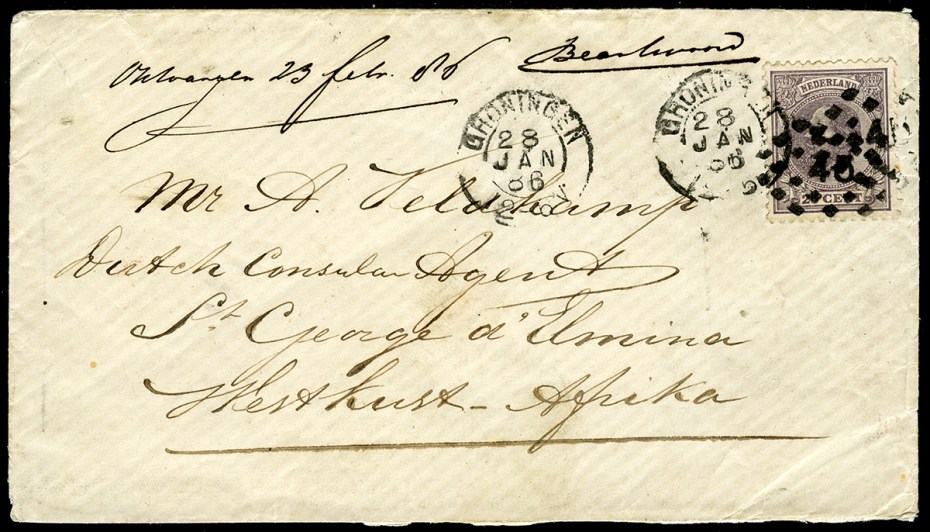 Ontvangen 23 febr. 86 Beantwoord
GRONINGEN
28
JAN
86
GRONIN
28
JAN
86
NEDERLAND
45
CENT
Mr A. Veldkamp
Dutch Consular Agent
St. George d'Elmina
Westkust - Afrika